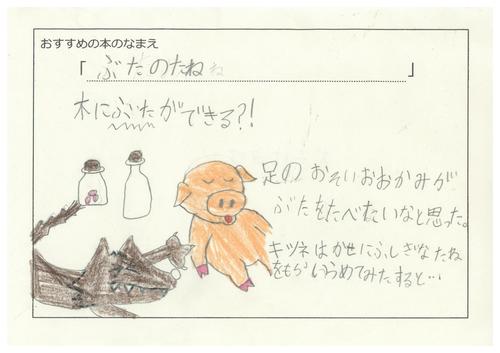 おすすめの本のなまえ
「ぶたのたね」
木にぶたができる?!
足のおそいおおかみが
ぶたをたべたいなと思った。
キツネはかせにふしぎなたね
をもらいうめてみたすると…